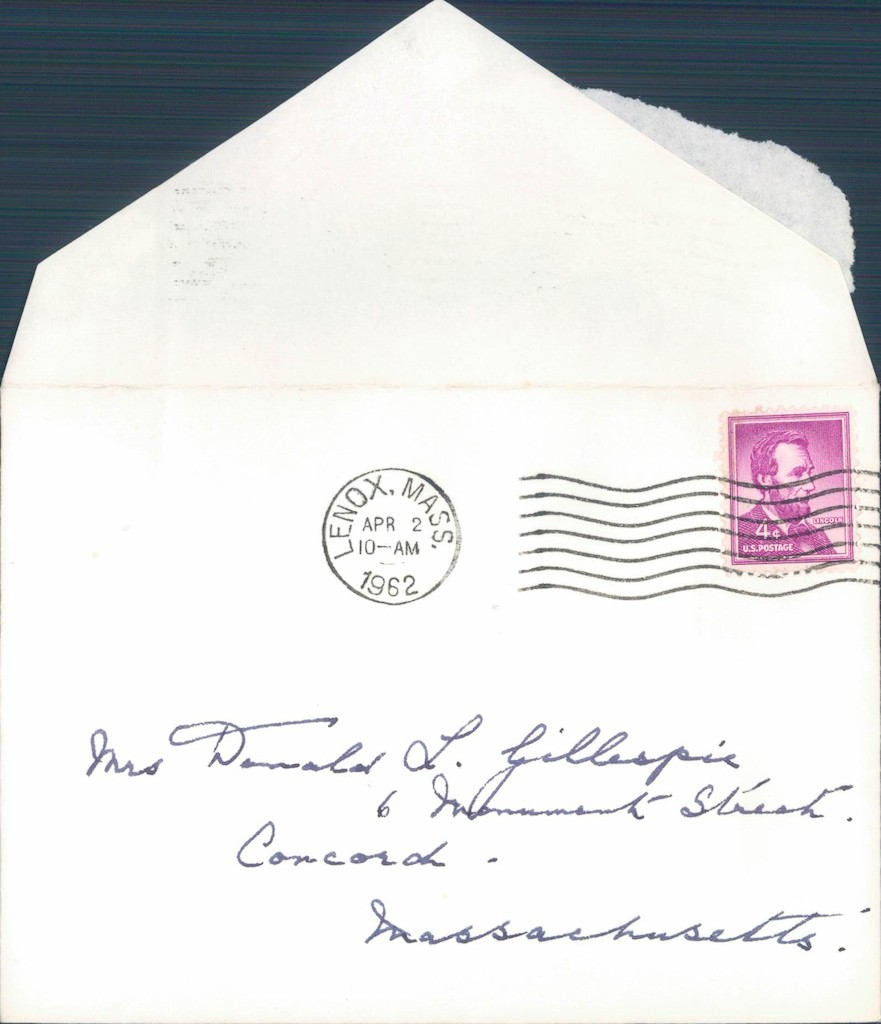 LENOX, MASS.
APR 2
10-AM
1962
LINCOLN
4¢
U.S. POSTAGE
Mrs Donald L. Gillespie
6 Monument Street.
Concord.
Massachusetts.